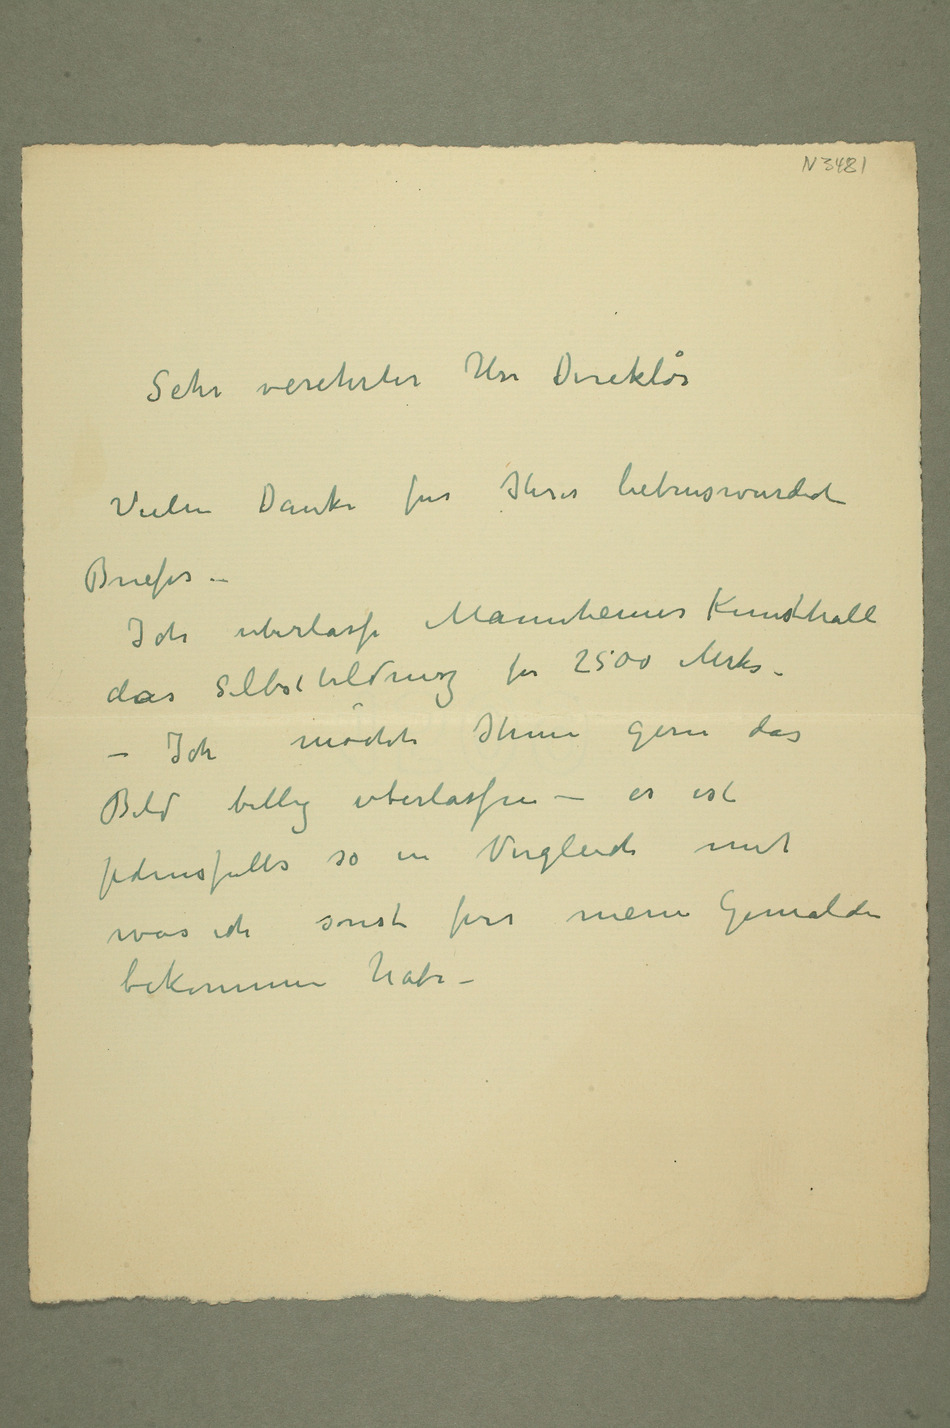 N 3481
Sehr verehrter Herr Direktor
Vielen Danke fur Ihres liebenswurdet
Briefes –
Ich uberlasse Mannheimer Kunsthalle
das Selbstbildnisz fur 2500 Merks. –
– Ich möchte Ihnen gern das
Bild billig uberlassen – es ist
jedensfalls so in Vergleich mit
was ich sonst fur meine Gemalde
bekommen habe –